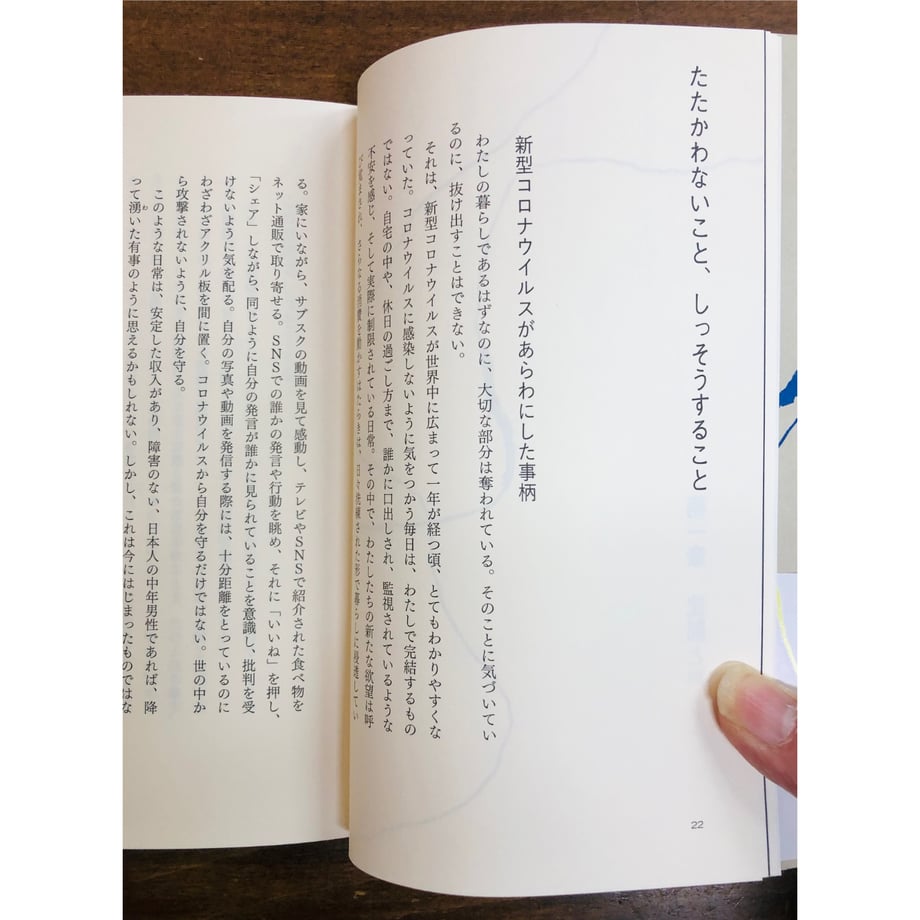 たたかわないこと、しっそうすること
新型コロナウイルスがあらわにした事柄
わたしの暮らしであるはずなのに、大切な部分は奪われている。そのことに気づいてい
るのに、抜け出すことはできない。
それは、新型コロナウイルスが世界中に広まって一年が経つ頃、とてもわかりやすくな
っていた。コロナウイルスに感染しないように気をつかう毎日は、わたしで完結するもの
ではない。自宅の中や、休日の過ごし方まで、誰かに口出しされ、監視されているような
不安を感じ、そして実際に制限されている日常。その中で、わたしたちの新たな欲望は呼
び起こされ、さらなる消費を動かすはたらきは、日々洗練された形で暮らしに浸透してい
22
る。家にいながら、サブスクの動画を見て感動し、テレビやSNSで紹介された食べ物を
ネット通販で取り寄せる。SNSでの誰かの発言や行動を眺め、それに「いいね」を押し、
「シェア」しながら、同じように自分の発言が誰かに見られていることを意識し、批判を受
けないように気を配る。自分の写真や動画を発信する際には、十分距離をとっているのに
わざわざアクリル板を間に置く。コロナウイルスから自分を守るだけではない。世の中か
ら攻撃されないように、自分を守る。
このような日常は、安定した収入があり、障害のない、日本人の中年男性であれば、降
って湧いた有事のように思えるかもしれない。しかし、これは今にはじまったものではな